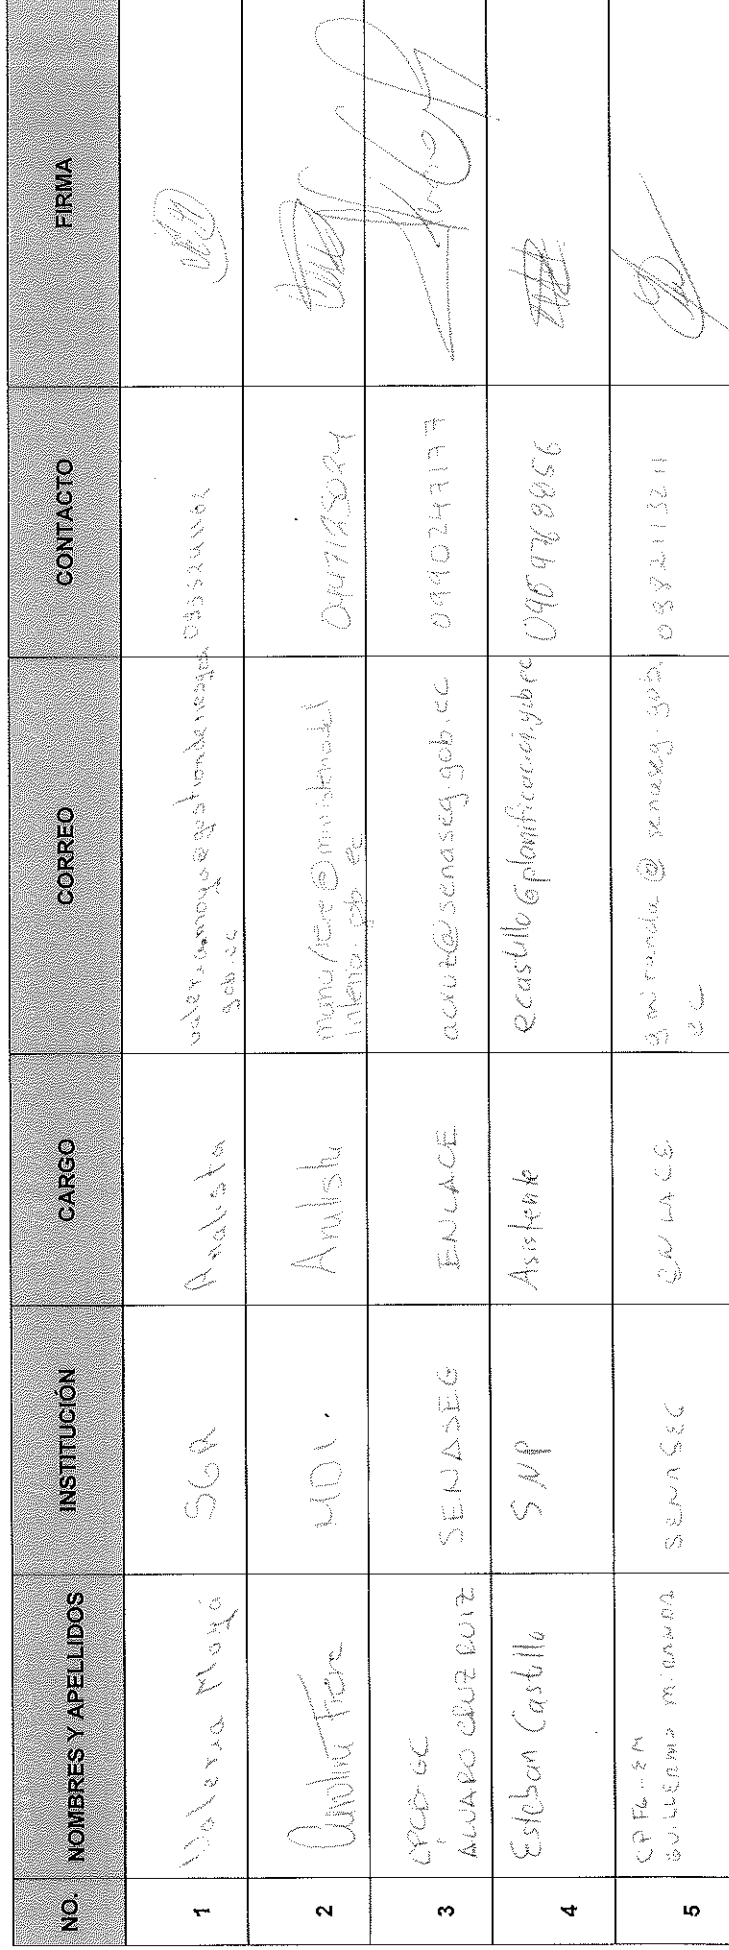 NO. NOMBRES Y APELLIDOS INSTITUCIÓN CARGO CORREO CONTACTO FIRMA
1 Valeria Moya SGR Analista valeria.moya@gestionderiesgos.
gob.ec
2 Carolina Freire MDI. Analista @ministeriodel
interior.gob.ec
3 CPCB-GC
ALVARO CRUZ RUIZ SENASEG ENLACE acruz@senaseg.gob.ec 0990247177
4 Esteban Castillo SNP Asistente ecastillo@planificacion.gob.ec
5 CPFG-EM
GUILLERMO MIRANDA SENASEG ENLACE gmiranda@senaseg.gob.
ec